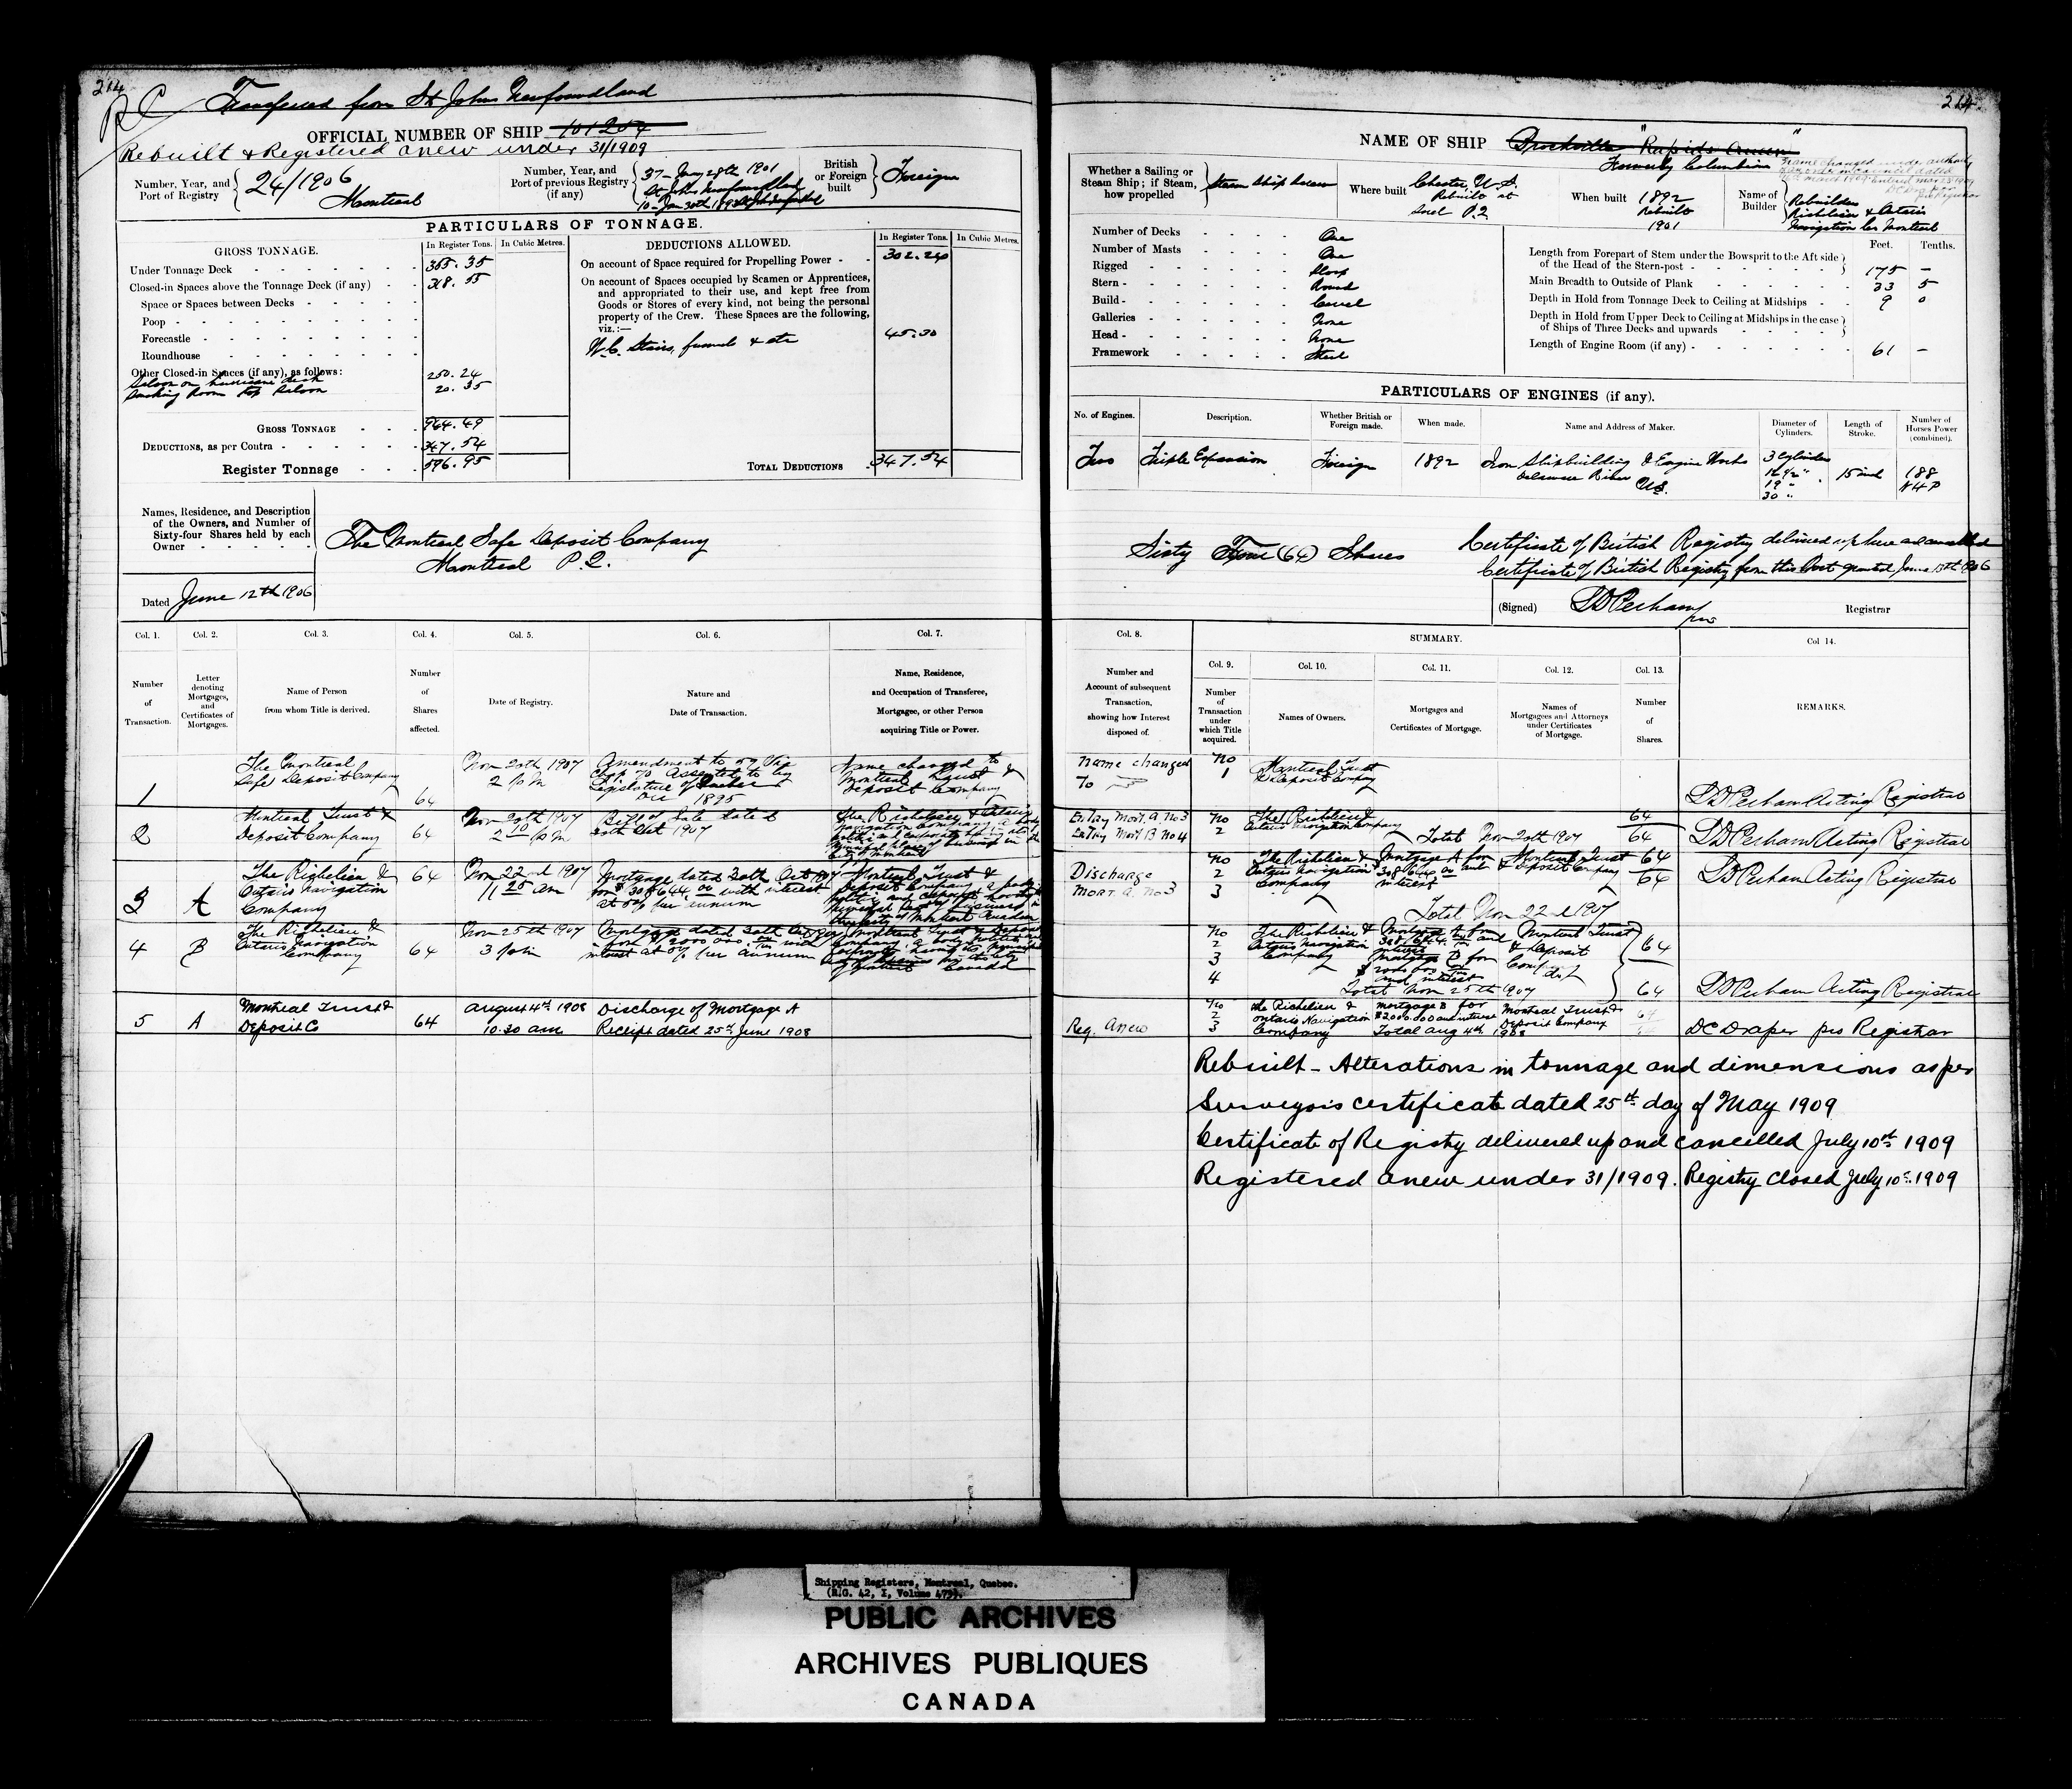 214
Transferred from St Johns Newfoundland
OFFICIAL NUMBER OF SHIP 101204
Rebuilt & Registered anew under 31/1909
Number, Year, and Port of Registry
24/1906
Montreal
Number, Year, and Port of previous Registry (if any)
37 - Jany 28th 1901
St. Johns Newfoundland
British or Foreign built
Foreign
PARTICULARS OF TONNAGE.
GROSS TONNAGE.
In Register Tons.
In Cubic Metres.
Under Tonnage Deck
365.35
Closed-in Spaces above the Tonnage Deck (if any)
318.55
Space or Spaces between Decks
Poop
Forecastle
Roundhouse
Other Closed-in Spaces (if any), as follows:
Saloon on hurricane deck
250.24
Smoking Room top Saloon
20.35
GROSS TONNAGE
964.49
DEDUCTIONS, as per Contra
347.54
Register Tonnage
596.95
DEDUCTIONS ALLOWED.
In Register Tons.
In Cubic Metres.
On account of Space required for Propelling Power
302.24
On account of Spaces occupied by Seamen or Apprentices,
and appropriated to their use, and kept free from
Goods or Stores of every kind, not being the personal
property of the Crew. These Spaces are the following,
viz.:—
W.C. Stairs, funnels & etc
45.30
TOTAL DEDUCTIONS
347.54
Names, Residence, and Description
of the Owners, and Number of
Sixty-four Shares held by each
Owner
The Montreal Safe Deposit Company
Montreal P.Q.
Dated June 12th 1906
214
NAME OF SHIP Brockville "Rapids Queen"
Formerly Columbian
Name changed under authority
Whether a Sailing or Steam Ship; if Steam, how propelled
Steam Ship Screw
Where built
Chester, U.S.
Rebuilt at
Sorel P.Q
When built
1892
Rebuilt
1901
Name of Builder
Rebuilders
Richelieu & Ontario
Navigation Co Montreal
Number of Decks
One
Number of Masts
One
Rigged
Sloop
Stern
Round
Build
Carvel
Galleries
None
Head
None
Framework
Steel
Feet.
Tenths.
Length from Forepart of Stem under the Bowsprit to the Aft side
of the Head of the Stern-post
175 -
Main Breadth to Outside of Plank
33 5
Depth in Hold from Tonnage Deck to Ceiling at Midships
9 0
Depth in Hold from Upper Deck to Ceiling at Midships in the case
of Ships of Three Decks and upwards
Length of Engine Room (if any)
61 -
PARTICULARS OF ENGINES (if any).
No. of Engines.
Description.
Whether British or Foreign made.
When made.
Name and Address of Maker.
Diameter of Cylinders.
Length of Stroke.
Number of Horses Power (combined).
Two
Triple Expansion
Foreign
1892
Iron Shipbuilding & Engine Works
Delaware River
U.S.
3 Cylinders
16 1/2 "
19 "
30 "
15 inch
188
NHP
Sixty Four (64) Shares
Certificate of British Registry delivered up here and cancelled
Certificate of British Registry from this Port granted June 13th 1906
(Signed)
Registrar
Col. 1.
Col. 2.
Col. 3.
Col. 4.
Col. 5.
Col. 6.
Col. 7.
Number of Transaction.
Letter denoting Mortgages, and Certificates of Mortgages.
Name of Person from whom Title is derived.
Number of Shares affected.
Date of Registry.
Nature and Date of Transaction.
Name, Residence, and Occupation of Transferee, Mortgagee, or other Person acquiring Title or Power.
Col. 8.
SUMMARY.
Col. 9.
Col. 10.
Col. 11.
Col. 12.
Col. 13.
Col 14.
Number and Account of subsequent Transaction, showing how Interest disposed of.
Number of Transaction under which Title acquired.
Names of Owners.
Mortgages and Certificates of Mortgage.
Names of Mortgagees and Attorneys under Certificates of Mortgage.
Number of Shares.
REMARKS.
1
The Montreal
Safe Deposit Company
64
Nov 20th 1907
2 P.M
Amendment to 59 Vic
Chap 70 Assented to by
Legislature of Quebec
1895
Name changed to
Montreal Trust &
Deposit Company
2
Montreal Trust &
Deposit Company
64
Nov 20th 1907
2 10 P.M
Bill of Sale dated
30th Oct 1907
The Richelieu & Ontario
Navigation Company
3
A
The Richelieu &
Ontario Navigation
Company
64
Nov 22nd 1907
11 25 am
Mortgage dated 30th Oct 1907
for $308,644.00 with interest
at 5% per annum
Montreal Trust &
Deposit Company
4
B
The Richelieu &
Ontario Navigation
Company
64
Nov 25th 1907
3 p.m
Mortgage dated 30th
interest at 5% per annum
Canada
5
A
Montreal Trust &
Deposit Co
64
August 4th 1908
10.30 am
Discharge of Mortgage A
Receipt dated 25th June 1908
name changed
To
No
1
Montreal Trust
& Deposit Company
L D Perham Acting Registrar
Entry Mort. A. No 3
Entry Mort B No 4
No
2
The Richelieu &
Ontario Navigation Company
Total Nov 20th 1907
64
64
L D Perham Acting Registrar
Discharge
Mort. A No 3
No
2
3
The Richelieu &
Ontario Navigation
Company
Mortgage A for
308,644.00 and
interest
Montreal Trust
& Deposit Company
64
64
L D Perham Acting Registrar
Total Nov 22d 1907
No
2
3
4
The Richelieu &
Ontario Navigation
Company
Mortgage A for
interest
Mortgage B for
and interest
Montreal Trust
& Deposit
Total Nov 25th 1907
64
64
L D Perham Acting Registrar
Reg. Anew
No
2
3
The Richelieu &
Ontario Navigation
Company
mortgage B for
$2000.000 and interest
Total Aug 4th 1908
Montreal Trust &
Deposit Company
64
DC Draper pro Registrar
Rebuilt - Alterations in tonnage and dimensions as per
Surveyor's certificate dated 25th day of May 1909
Certificate of Registry delivered up and cancelled July 10th 1909
Registered anew under 31/1909. Registry closed July 10th 1909
Shipping Registers, Montreal, Quebec.
PUBLIC ARCHIVES
ARCHIVES PUBLIQUES
CANADA